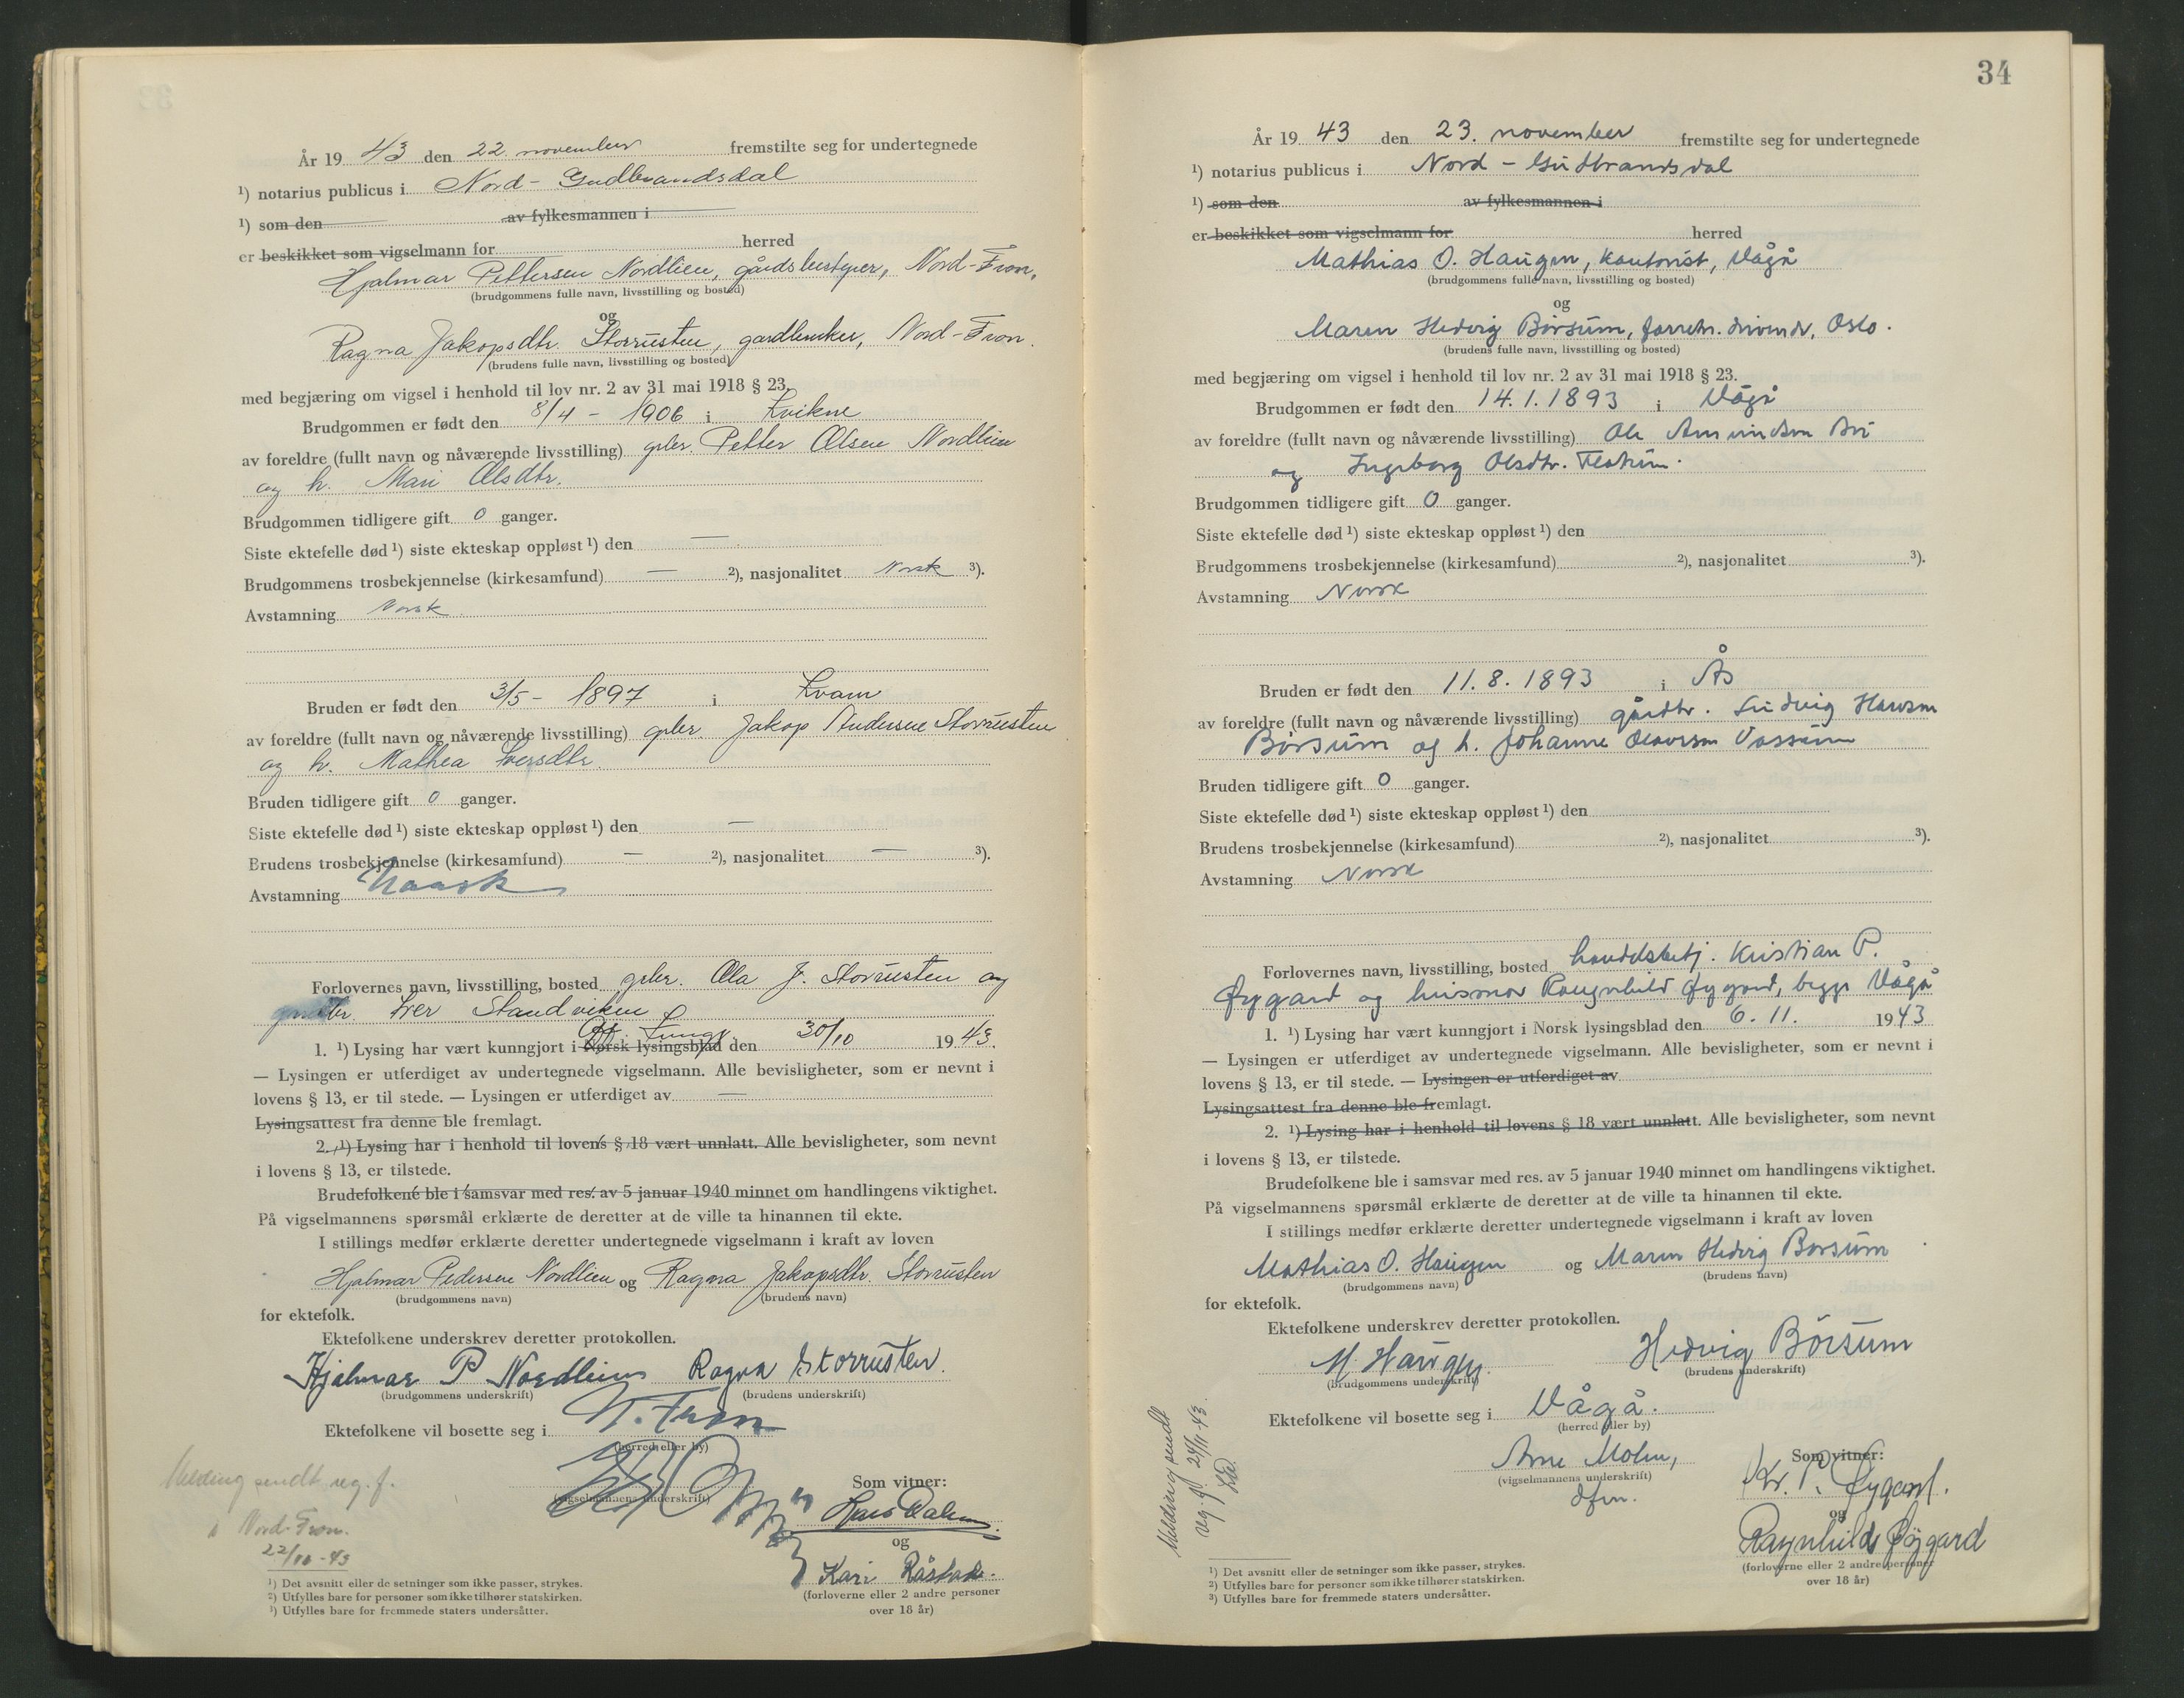 År 19 43 den 22. november fremstilte seg for undertegnede
¹) notarius publicus i Nord-Gudbrandsdal
¹) som den av fylkesmannen i
er beskikket som vigselmann for herred
Hjalmar Pettersen Nordlien, gårdsbestyrer, Nord-Fron,
(brudgommens fulle navn, livsstilling og bosted)
og
Ragna Jakopsdtr. Storrusten, gardbruker, Nord-Fron.
(brudens fulle navn, livsstilling og bosted)
med begjæring om vigsel i henhold til lov nr. 2 av 31 mai 1918 § 23.
Brudgommen er født den 8/4 - 1906 i Kvikne
av foreldre (fullt navn og nåværende livsstilling) gbr. Petter Olsen Nordlien
og h. Mari Olsdtr.
Brudgommen tidligere gift 0 ganger.
Siste ektefelle død ¹) siste ekteskap oppløst ¹) den —
Brudgommens trosbekjennelse (kirkesamfund) — ²), nasjonalitet Norsk ³).
Avstamning Norsk
Bruden er født den 3/5 - 1897 i Kvam
av foreldre (fullt navn og nåværende livsstilling) gbr. Jakop Andersen Storrusten
og h. Mathea Iversdtr.
Bruden tidligere gift 0 ganger.
Siste ektefelle død ¹) siste ekteskap oppløst ¹) den —
Brudens trosbekjennelse (kirkesamfund) — ²), nasjonalitet — ³).
Avstamning Norsk
Forlovernes navn, livsstilling, bosted gbr. Ola J. Storrusten og
gardbr. Iver Standviken
1. ¹) Lysing har vært kunngjort i Norsk lysingsblad den 30/10 19 43.
— Lysingen er utferdiget av undertegnede vigselmann. Alle bevisligheter, som er nevnt i
lovens § 13, er til stede. — Lysingen er utferdiget av —
Lysingsattest fra denne ble fremlagt.
2. ¹) Lysing har i henhold til lovens § 18 vært unnlatt. Alle bevisligheter, som nevnt
i lovens § 13, er tilstede.
Brudefolkene ble i samsvar med res. av 5 januar 1940 minnet om handlingens viktighet.
På vigselmannens spørsmål erklærte de deretter at de ville ta hinannen til ekte.
I stillings medfør erklærte deretter undertegnede vigselmann i kraft av loven
Hjalmar Pedersen Nordlien og Ragna Jakopsdtr. Storrusten
(brudgommens navn) (brudens navn)
for ektefolk.
Ektefolkene underskrev deretter protokollen.
Hjalmar P Nordlien Ragna Storrusten.
(brudgommens underskrift) (brudens underskrift)
Ektefolkene vil bosette seg i N. Fron
(herred eller by)
(vigselmannens underskrift) Som vitner:
og
Kari
(forloverne eller 2 andre personer
over 18 år)
Melding sendt reg. f.
i Nord-Fron.
22/11-43
¹) Det avsnitt eller de setninger som ikke passer, strykes.
²) Utfylles bare for personer som ikke tilhører statskirken.
³) Utfylles bare for fremmede staters undersåtter.
34
År 19 43 den 23. november fremstilte seg for undertegnede
¹) notarius publicus i Nord-Gudbrandsdal
¹) som den av fylkesmannen i
er beskikket som vigselmann for herred
Mathias O. Haugen, kontorist, Vågå
(brudgommens fulle navn, livsstilling og bosted)
og
Maren Hedvig Børsum, forretn. drivende, Oslo.
(brudens fulle navn, livsstilling og bosted)
med begjæring om vigsel i henhold til lov nr. 2 av 31 mai 1918 § 23.
Brudgommen er født den 14.1.1893 i Vågå
av foreldre (fullt navn og nåværende livsstilling) Ole Amundsen
og Ingeborg Olsdtr.
Brudgommen tidligere gift 0 ganger.
Siste ektefelle død ¹) siste ekteskap oppløst ¹) den
Brudgommens trosbekjennelse (kirkesamfund) ²), nasjonalitet ³).
Avstamning Norsk
Bruden er født den 11.8.1893 i Ås
av foreldre (fullt navn og nåværende livsstilling) gårdbr. Ludvig Hansen
Børsum og h. Johanne Vassum
Bruden tidligere gift 0 ganger.
Siste ektefelle død ¹) siste ekteskap oppløst ¹) den
Brudens trosbekjennelse (kirkesamfund) ²), nasjonalitet ³).
Avstamning Norsk
Forlovernes navn, livsstilling, bosted handelsbetj. Kristian P.
Øygard og husmor Ragnhild Øygard, begge Vågå
1. ¹) Lysing har vært kunngjort i Norsk lysingsblad den 6. 11. 19 43
— Lysingen er utferdiget av undertegnede vigselmann. Alle bevisligheter, som er nevnt i
lovens § 13, er til stede. — Lysingen er utferdiget av
Lysingsattest fra denne ble fremlagt.
2. ¹) Lysing har i henhold til lovens § 18 vært unnlatt. Alle bevisligheter, som nevnt
i lovens § 13, er tilstede.
Brudefolkene ble i samsvar med res. av 5 januar 1940 minnet om handlingens viktighet.
På vigselmannens spørsmål erklærte de deretter at de ville ta hinannen til ekte.
I stillings medfør erklærte deretter undertegnede vigselmann i kraft av loven
Mathias O. Haugen og Maren Hedvig Børsum
(brudgommens navn) (brudens navn)
for ektefolk.
Ektefolkene underskrev deretter protokollen.
M. Haugen. Hedvig Börsum
(brudgommens underskrift) (brudens underskrift)
Ektefolkene vil bosette seg i Vågå.
(herred eller by)
Arne Molen, Som vitner:
(vigselmannens underskrift) Kr. P. Øygard.
dfm. og
Ragnhild Øygard
(forloverne eller 2 andre personer
over 18 år)
Melding sendt
reg.f. 24/11-43
¹) Det avsnitt eller de setninger som ikke passer, strykes.
²) Utfylles bare for personer som ikke tilhører statskirken.
³) Utfylles bare for fremmede staters undersåtter.